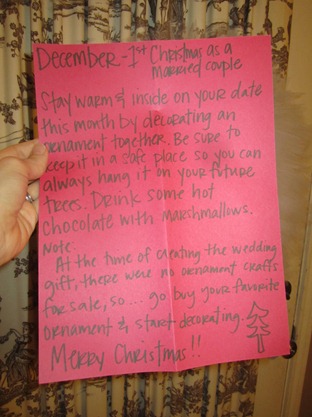 December - 1st Christmas as a
married couple
Stay warm & inside on your date
this month by decorating an
ornament together. Be sure to
keep it in a safe place so you can
always hang it on your future
trees. Drink some hot
chocolate with marshmallows.
Note:
At the time of creating the wedding
gift, there were no ornament crafts
for sale, so... go buy your favorite
ornament & start decorating.
Merry Christmas!!